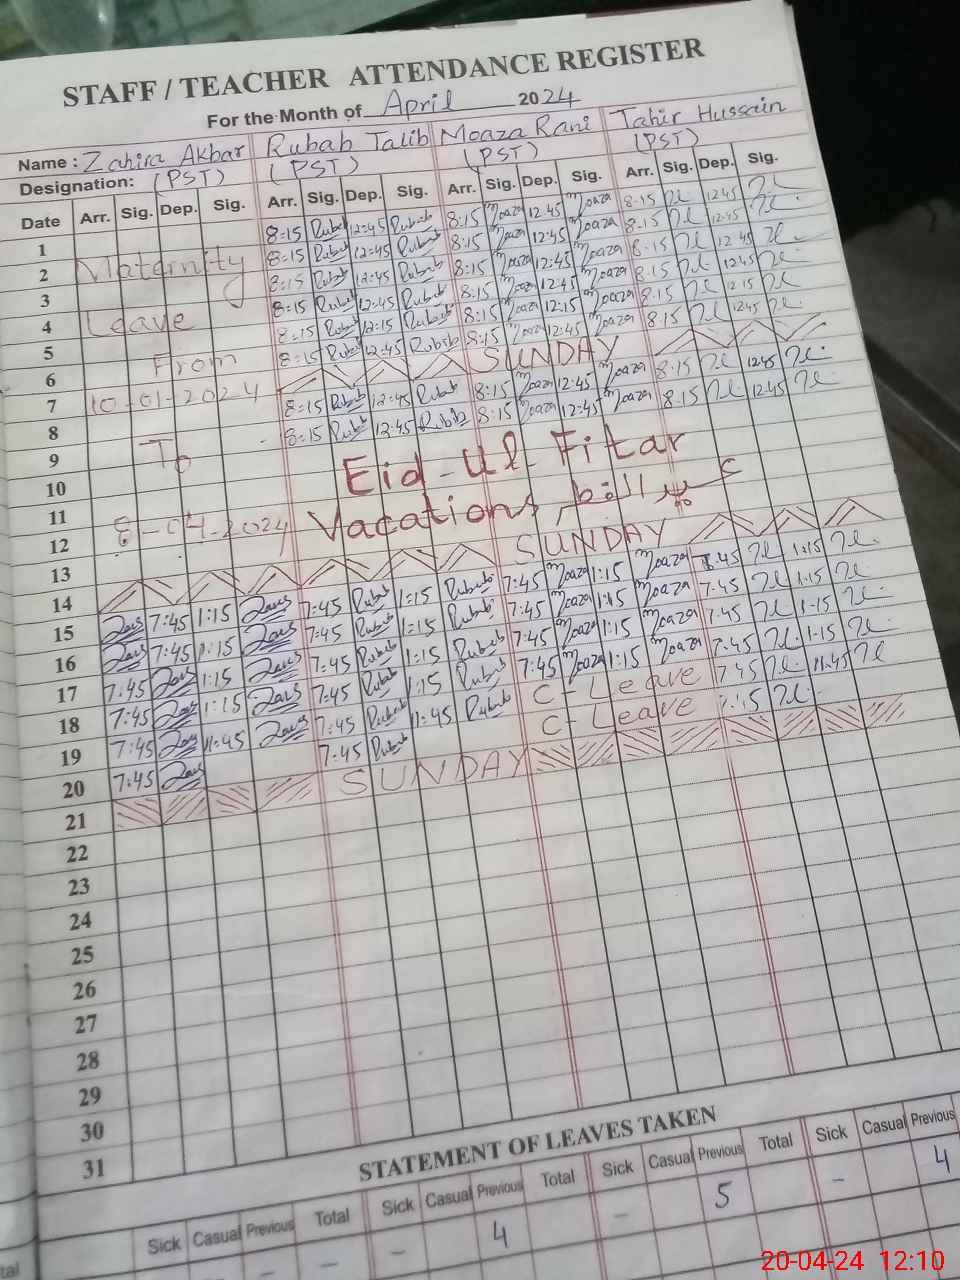 STAFF / TEACHER ATTENDANCE REGISTER
For the Month of April 2024
Name : Zahira Akbar Rubab Talib Moaza Rani Tahir Hussain
Designation: (PST) (PST) (PST) (PST)
Date Arr. Sig. Dep. Sig. Arr. Sig. Dep. Sig. Arr. Sig. Dep. Sig. Arr. Sig. Dep. Sig.
1 8:15 Rubab 12:45 Rubab 8:15 Moaza 12:45 Moaza 8:15 12:45
2 Maternity 8:15 Rubab 12:45 Rubab 8:15 Moaza 12:45 Moaza 8:15 12:45
3 8:15 Rubab 12:45 Rubab 8:15 Moaza 12:45 Moaza 8:15 12:45
4 Leave 8:15 Rubab 12:45 Rubab 8:15 Moaza 12:45 Moaza 8:15 12:45
5 8:15 Rubab 12:15 Rubab 8:15 Moaza 12:15 Moaza 8:15 12:15
6 From 8:15 Rubab 12:45 Rubab 8:15 Moaza 12:45 Moaza 8:15 12:45
7 10-01-2024 SUNDAY
8 8:15 Rubab 12:45 Rubab 8:15 Moaza 12:45 Moaza 8:15 12:45
9 To 8:15 Rubab 12:45 Rubab 8:15 Moaza 12:45 Moaza 8:15 12:45
10 Eid-Ul-Fitar
11 8-04-2024 Vacations عید الفطر
12
13
14 SUNDAY
15 7:45 1:15 7:45 Rubab 1:15 Rubab 7:45 Moaza 1:15 Moaza 7:45 1:15
16 7:45 1:15 7:45 Rubab 1:15 Rubab 7:45 Moaza 1:15 Moaza 7:45 1:15
17 7:45 1:15 7:45 Rubab 1:15 Rubab 7:45 Moaza 1:15 Moaza 7:45 1:15
18 7:45 1:15 7:45 Rubab 1:15 Rubab 7:45 Moaza 1:15 Moaza 7:45 1:15
19 7:45 11:45 7:45 Rubab 11:45 Rubab C-Leave 7:45 11:45
20 7:45 7:45 Rubab C-Leave
21 SUNDAY
22
23
24
25
26
27
28
29
30
31
STATEMENT OF LEAVES TAKEN
Sick Casual Previous Total Sick Casual Previous Total Sick Casual Previous Total Sick Casual Previous
– – – 4 – 5 – 4
20-04-24 12:10